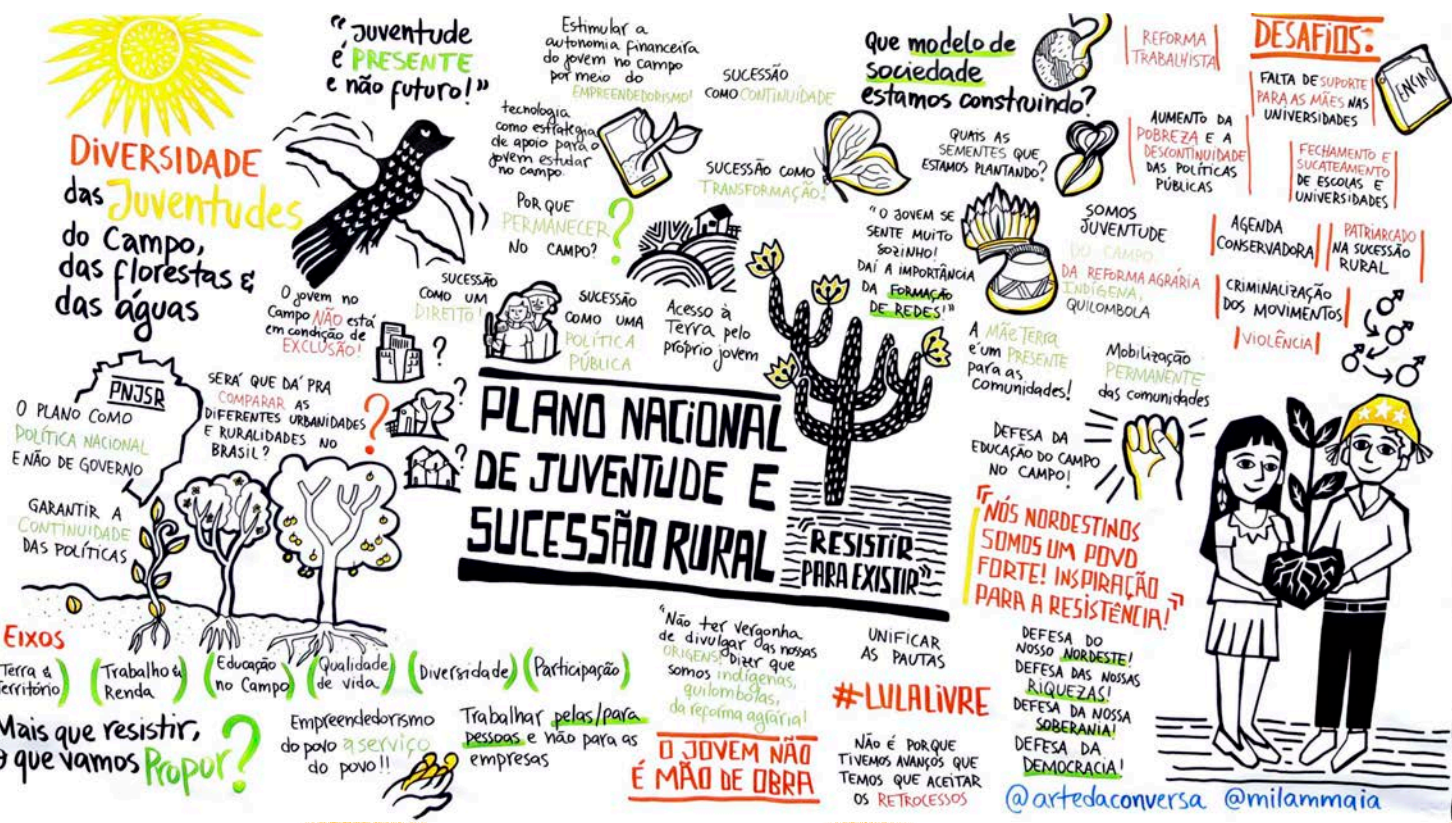 "Juventude
é PRESENTE
e não futuro!"
DIVERSIDADE
das Juventudes
do Campo,
das florestas &
das águas
Estimular a
autonomia financeira
do jovem no campo
por meio do
EMPREENDEDORISMO!
SUCESSÃO
COMO CONTINUIDADE
tecnologia
como estratégia
de apoio para o
jovem estudar
no campo.
SUCESSÃO COMO
TRANSFORMAÇÃO!
POR QUE
PERMANECER
NO CAMPO?
O jovem no
Campo NÃO está
em condição de
EXCLUSÃO!
SUCESSÃO
COMO UM
DIREITO!
SUCESSÃO
COMO UMA
POLÍTICA
PÚBLICA
Acesso à
Terra pelo
próprio jovem
Que modelo de
sociedade
estamos construindo?
QUAIS AS
SEMENTES QUE
ESTAMOS PLANTANDO?
"O JOVEM SE
SENTE MUITO
SOZINHO!
DAÍ A IMPORTÂNCIA
DA FORMAÇÃO
DE REDES!"
SOMOS
JUVENTUDE
DO CAMPO,
DA REFORMA AGRÁRIA
INDÍGENA,
QUILOMBOLA
A MÃE TERRA
é um PRESENTE
para as
comunidades!
Mobilização
PERMANENTE
das comunidades
DEFESA DA
EDUCAÇÃO DO CAMPO
NO CAMPO!
DESAFIOS:
REFORMA
TRABALHISTA
FALTA DE SUPORTE
PARA AS MÃES NAS
UNIVERSIDADES
ENCINO
AUMENTO DA
POBREZA E A
DESCONTINUIDADE
DAS POLÍTICAS
PÚBLICAS
FECHAMENTO E
SUCATEAMENTO
DE ESCOLAS E
UNIVERSIDADES
AGENDA
CONSERVADORA
PATRIARCADO
NA SUCESSÃO
RURAL
CRIMINALIZAÇÃO
DOS MOVIMENTOS
VIOLÊNCIA
PNJSR
O PLANO COMO
POLÍTICA NACIONAL
E NÃO DE GOVERNO
SERÁ QUE DÁ PRA
COMPARAR AS
DIFERENTES URBANIDADES
E RURALIDADES NO
BRASIL?
GARANTIR A
CONTINUIDADE
DAS POLÍTICAS
PLANO NACIONAL
DE JUVENTUDE E
SUCESSÃO RURAL
RESISTIR
PARA EXISTIR"
"NÓS NORDESTINOS
SOMOS UM POVO
FORTE! INSPIRAÇÃO
PARA A RESISTÊNCIA!"
EIXOS
Terra &
Território
Trabalho &
Renda
Educação
no Campo
Qualidade
de vida
Diversidade
Participação
Mais que resistir,
o que vamos Propor?
Empreendedorismo
do povo a serviço
do povo!!
Trabalhar pelas/para
pessoas e não para as
empresas
"Não ter vergonha
de divulgar as nossas
ORIGENS! Dizer que
somos indígenas,
quilombolas,
da reforma agrária!
O JOVEM NÃO
É MÃO DE OBRA
UNIFICAR
AS PAUTAS
#LULALIVRE
NÃO É PORQUE
TIVEMOS AVANÇOS QUE
TEMOS QUE ACEITAR
OS RETROCESSOS
DEFESA DO
NOSSO NORDESTE!
DEFESA DAS NOSSAS
RIQUEZAS!
DEFESA DA NOSSA
SOBERANIA!
DEFESA DA
DEMOCRACIA!
@artedaconversa @milammaia